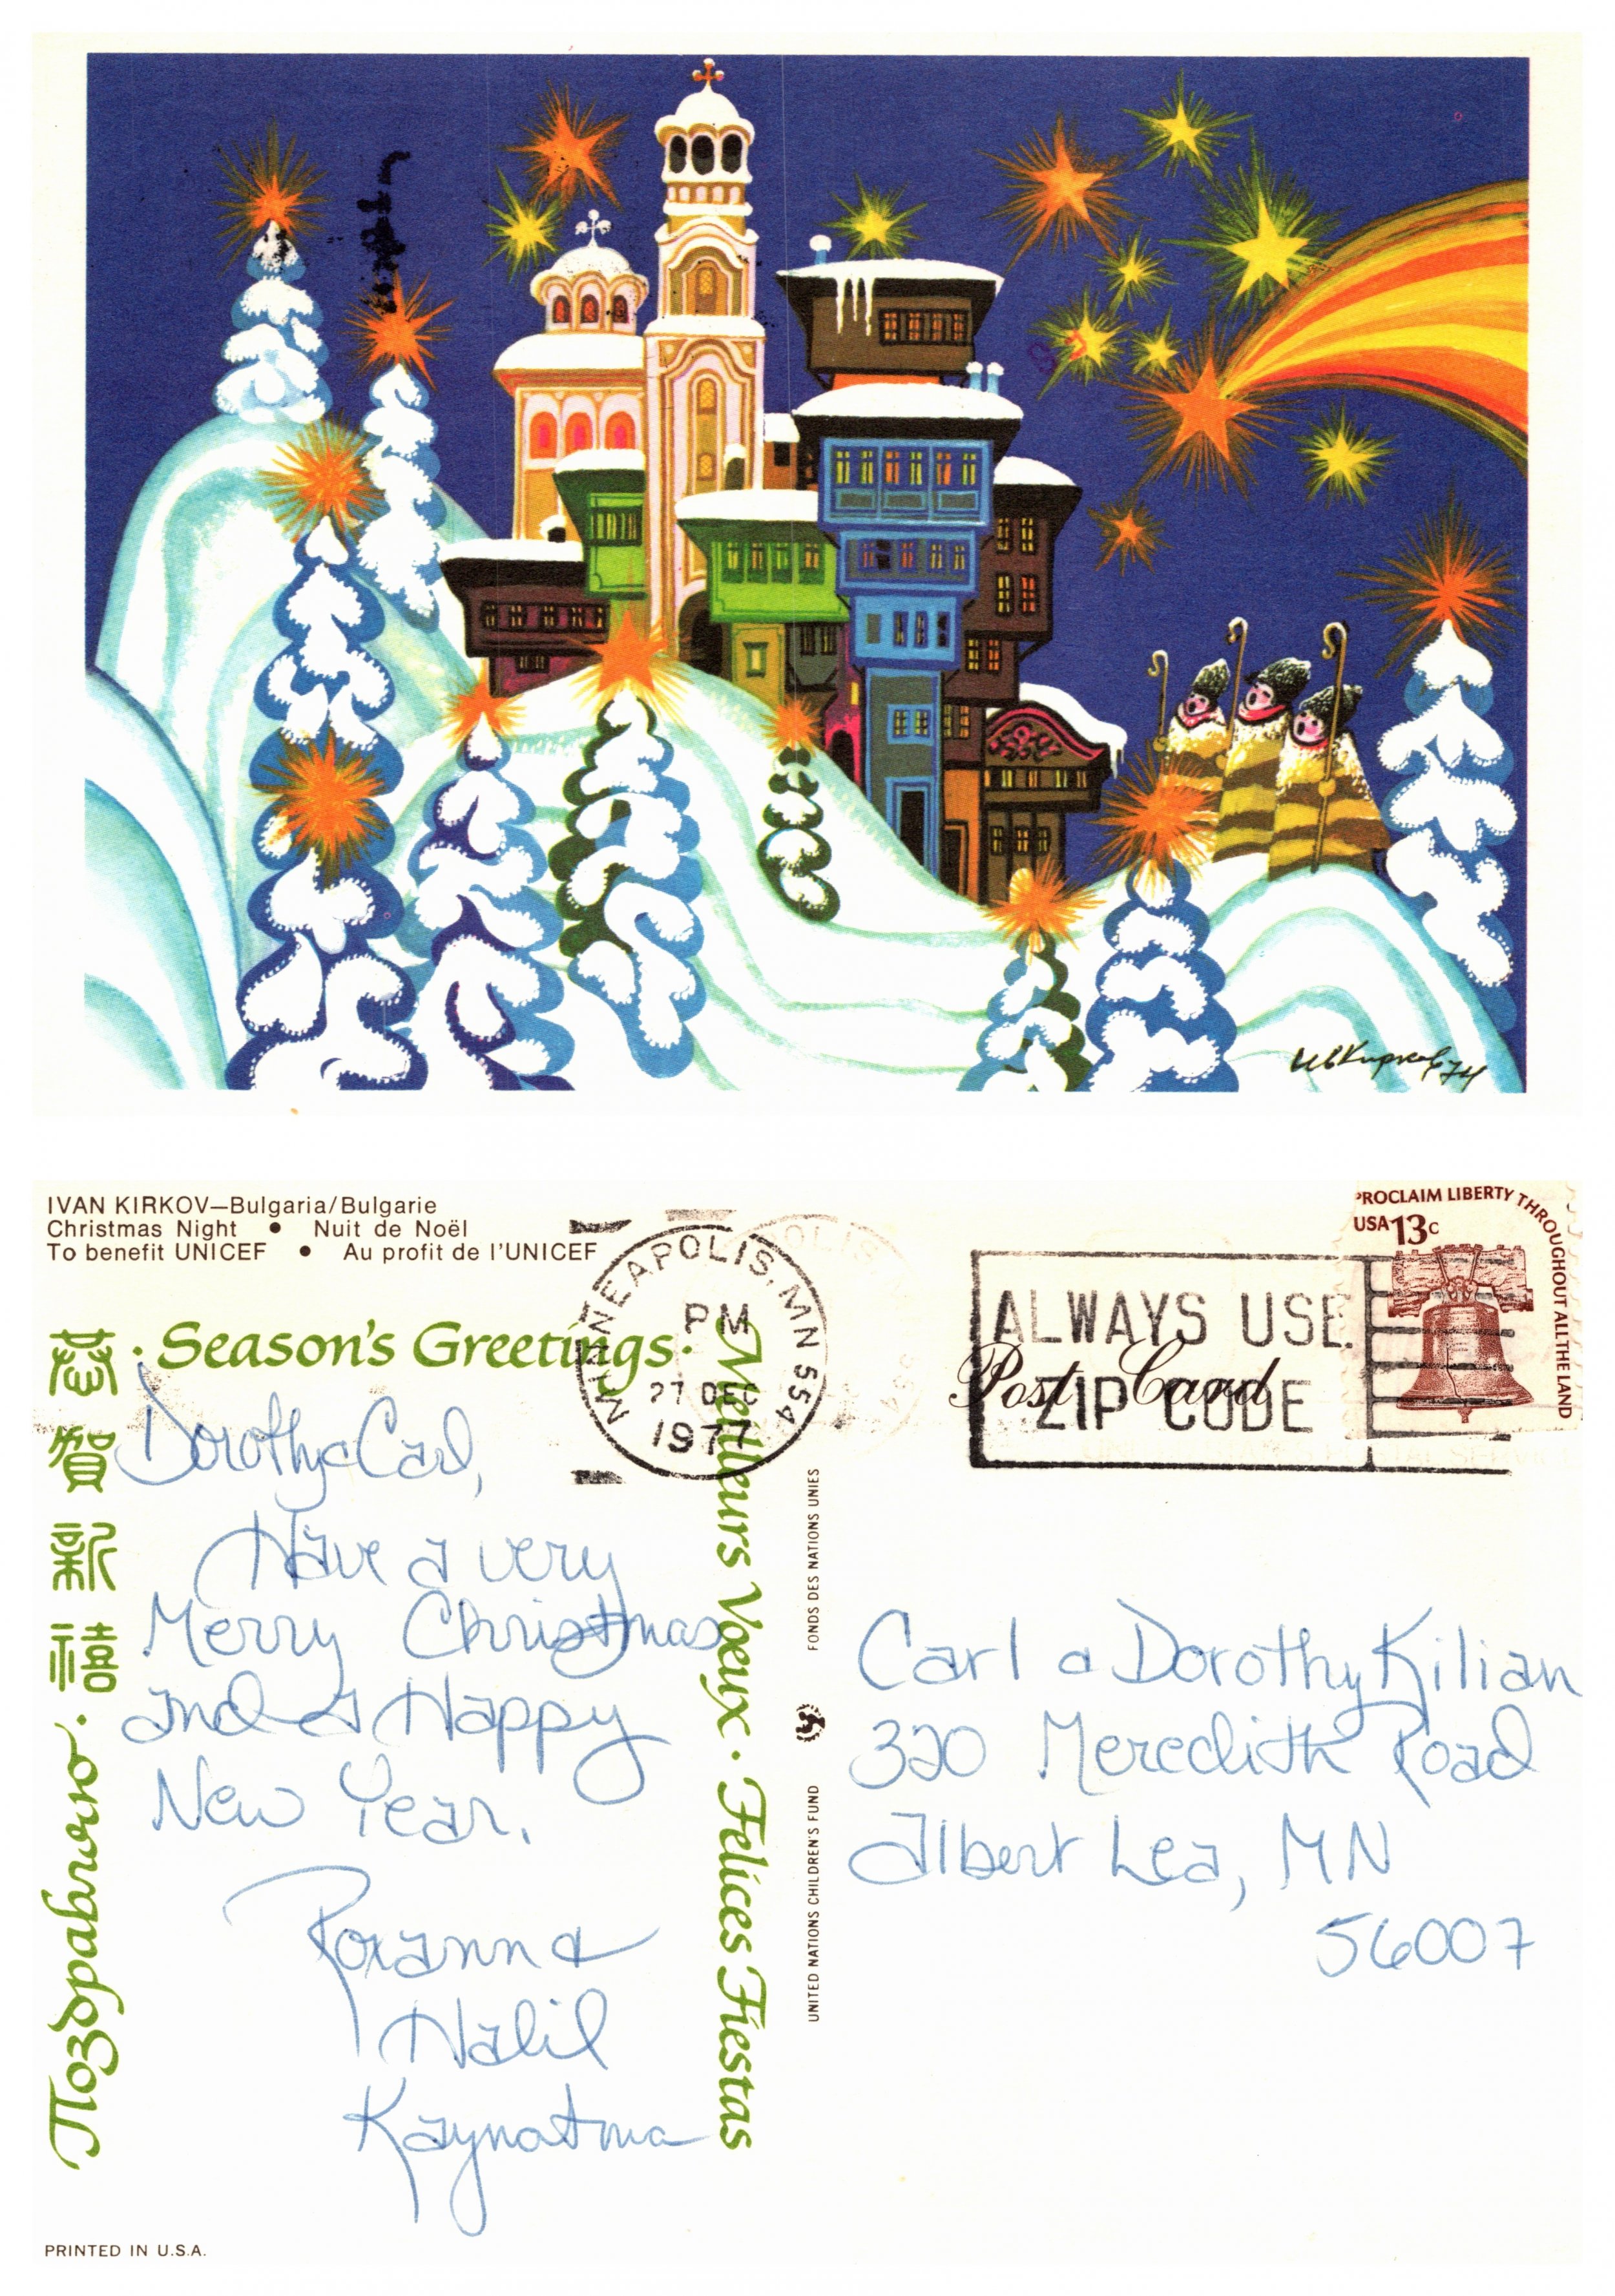 Ив Кирков 74
IVAN KIRKOV—Bulgaria/Bulgarie
Christmas Night • Nuit de Noël
To benefit UNICEF • Au profit de l'UNICEF
MINNEAPOLIS, MN 554
PM
27 DEC
1977
ALWAYS USE
ZIP CODE
Post Card
PROCLAIM LIBERTY THROUGHOUT ALL THE LAND
USA 13c
· Season's Greetings ·
Meilleurs Vœux · Felices Fiestas
恭賀新禧
Поздравляю ·
Dorothy & Carl,
Have a very
Merry Christmas
and a Happy
New Year.
Roxann &
Halil
Kaynatma
FONDS DES NATIONS UNIES
UNITED NATIONS CHILDREN'S FUND
Carl & Dorothy Kilian
320 Meredith Road
Albert Lea, MN
56007
PRINTED IN U.S.A.